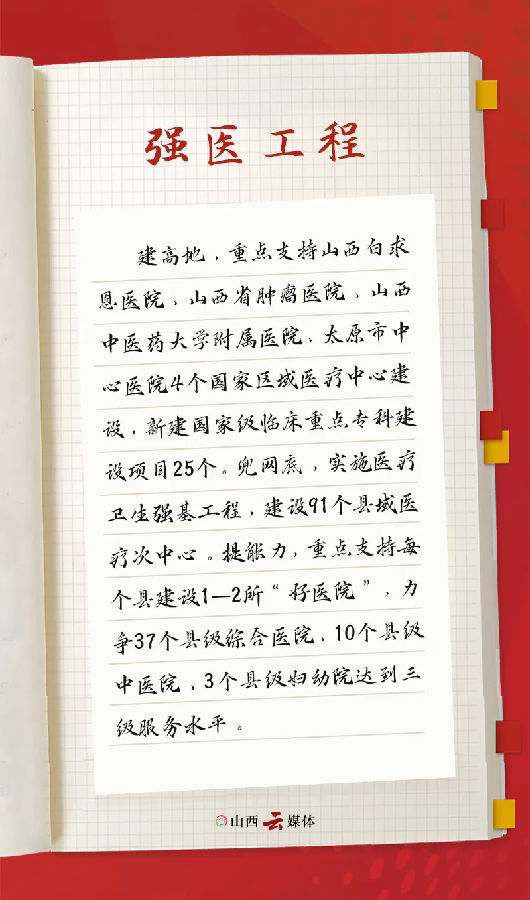 强医工程
建高地，重点支持山西白求
恩医院、山西省肿瘤医院、山西
中医药大学附属医院、太原市中
心医院4个国家区域医疗中心建
设，新建国家级临床重点专科建
设项目25个。兜网底，实施医疗
卫生强基工程，建设91个县域医
疗次中心。提能力，重点支持每
个县建设1—2所“好医院”，力
争37个县级综合医院、10个县级
中医院、3个县级妇幼院达到三
级服务水平。
山西云媒体